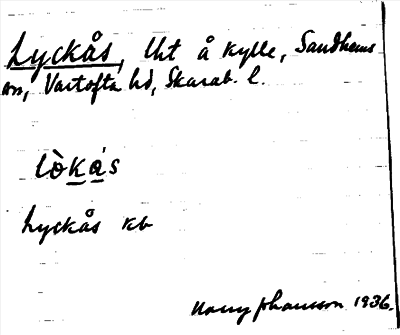 Lyckås, lht å Kylle, Sandhems
sn, Vartofta hd, Skarab. l.
lò̱ka̱´s
Lyckås kb
Harry Johansson 1936.